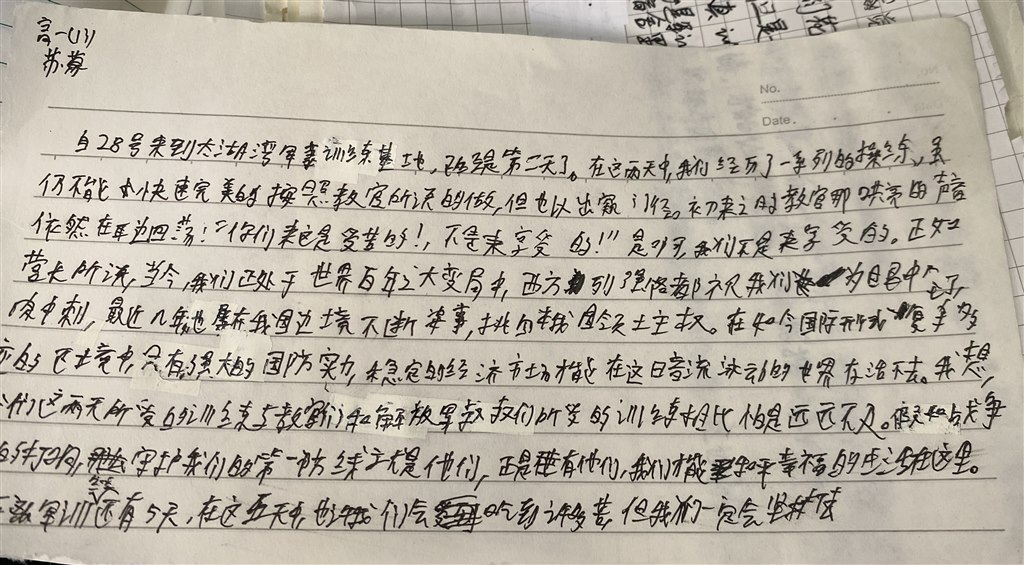 高一(13)
苏蓦
No.
Date.
自28号来到太湖湾军事训练基地,已是第二天了。在这两天中,我们经历了一系列的操练,虽
仍不能快速完美的按照教官所说的做,但也以出窥门径。初来之时教官那洪亮的声音
依然在耳边回荡!"你们来这是受苦的!,不是来享受的!"是的,我们不是来享受的。正如
营长所说,当今,我们正处于世界百年之大变局中,西方列强皆都视我们为眼中钉,
肉中刺,最近几年也屡在我国边境不断滋事,挑衅我国领土主权。在如今国际形式复杂多
的环境中,只有强大的国防实力,稳定的经济市场才能在这日喾流涌动的世界存活下去。我想,
们这两天所受的训练与教官们和解放军叔叔们所受的训练相比怕是远远不及。假如战争
的打响,守护我们的第一防线就是他们,正是有他们,我们才能和平幸福的生活在这里。
军训还有5天,在这五天中,也许我们会吃到许多苦,但我们一定会坚持